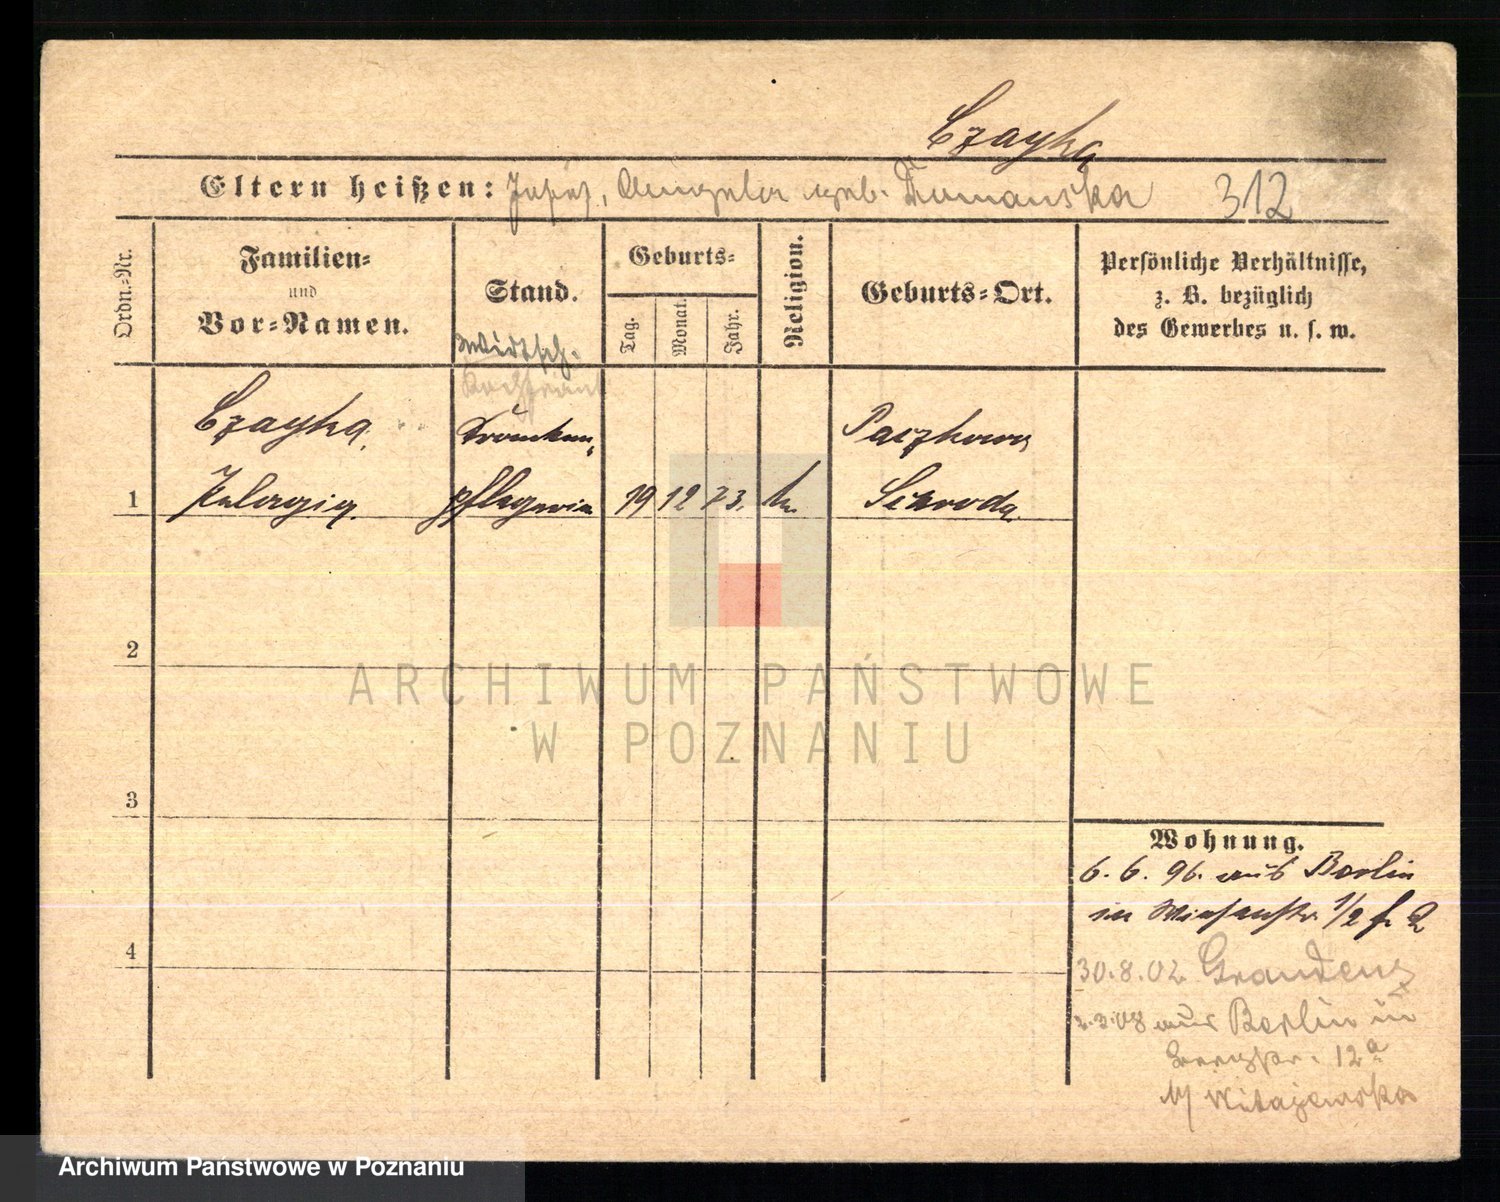 Czayka
Eltern heißen: Josef, Angela geb. Dumanska 312
Ordn.-Nr.
Familien-
und
Vor-Namen.
Stand.
Geburts-
Tag.
Monat.
Jahr.
Religion.
Geburts-Ort.
Persönliche Verhältnisse,
z. B. bezüglich
des Gewerbes u. s. w.
Wirtsch.
Czayka,
Kranken,
Paczkowo
1 Pelagia. pflegerin 19 12 73. k. Schroda
2
ARCHIWUM PAŃSTWOWE
W POZNANIU
3
Wohnung.
6. 6. 96. aus Berlin
in Wiesenstr. 1/2 f. 2
4
30.8.02 Graudenz
2.3.08 aus Berlin in
12a
Witajewska
Archiwum Państwowe w Poznaniu